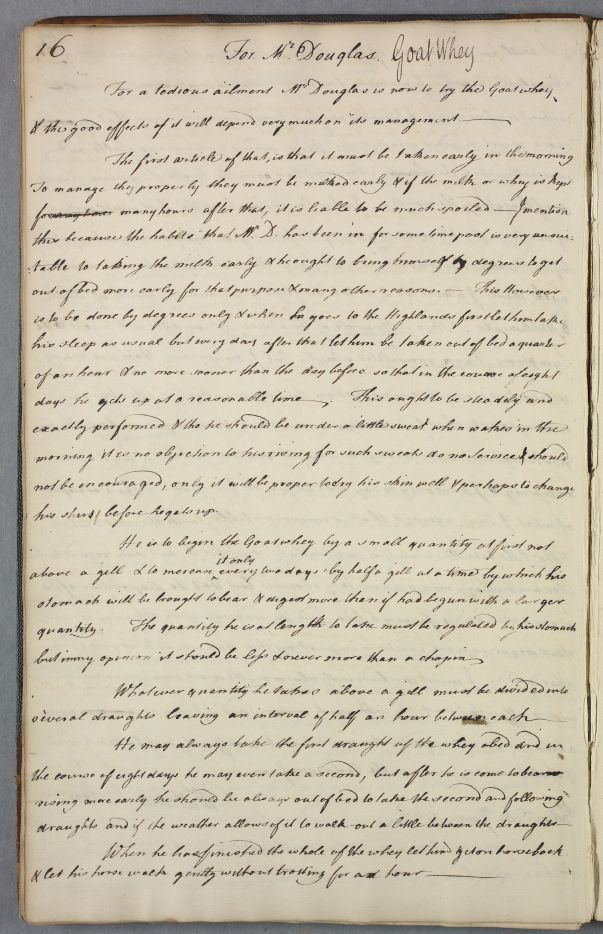 16 For Mr. Douglas. Goat Whey
For a tedious ailment Mr. Douglas is now to try the Goat whey
& the good effects of it will depend very much on its management —
The first article of that, is that it must be taken early in the morning
To manage this properly they must be milked early & if the milk or whey is kept
for many hours after that, it is liable to be much spoiled — I mention
this because the habits that Mr. D. has been in for some time past is very unsui-
-table to taking the milk early & he ought to bring himself by degrees to get
out of bed more early for that purpose & many other reasons. — This However
is to be done by degrees only & when he goes to the Highlands first let him take
his sleep as usual but every day after that let him be taken out of bed a quarter
of an hour & no more sooner than the day before so that in the course of eight
days he gets up at a reasonable time —, This ought to be steadily and
exactly performed & tho he should be under a little sweat when wakes in the
morning it is no objection to his rising for such sweats do no service & should
not be encouraged, only it will be proper to dry his skin well & perhaps to change
his shirt before he gets up.
He is to begin the Goat whey by a small quantity at first not
above a gill & to increase it only every two days by half a gill at a time by which his
stomach will be brought to bear & digest more than if had begun with a larger
quantity. The quantity he is at length to take must be regulated by his stomach
but in my opinion it should be less & never more than a chopin
Whatever quantity he takes above a gill must be divided into
several draughts leaving an interval of half an hour between each
He may always take the first draught of the whey abed and in
the course of eight days he may even take a second, but after he is come to bear
rising more early he should be always out of bed to take the second and following
draughts and if the weather allows of it to walk out a little between the draughts —
When he has finished the whole of the whey let him get on horseback
& let his horse walk gently without trotting for an hour —